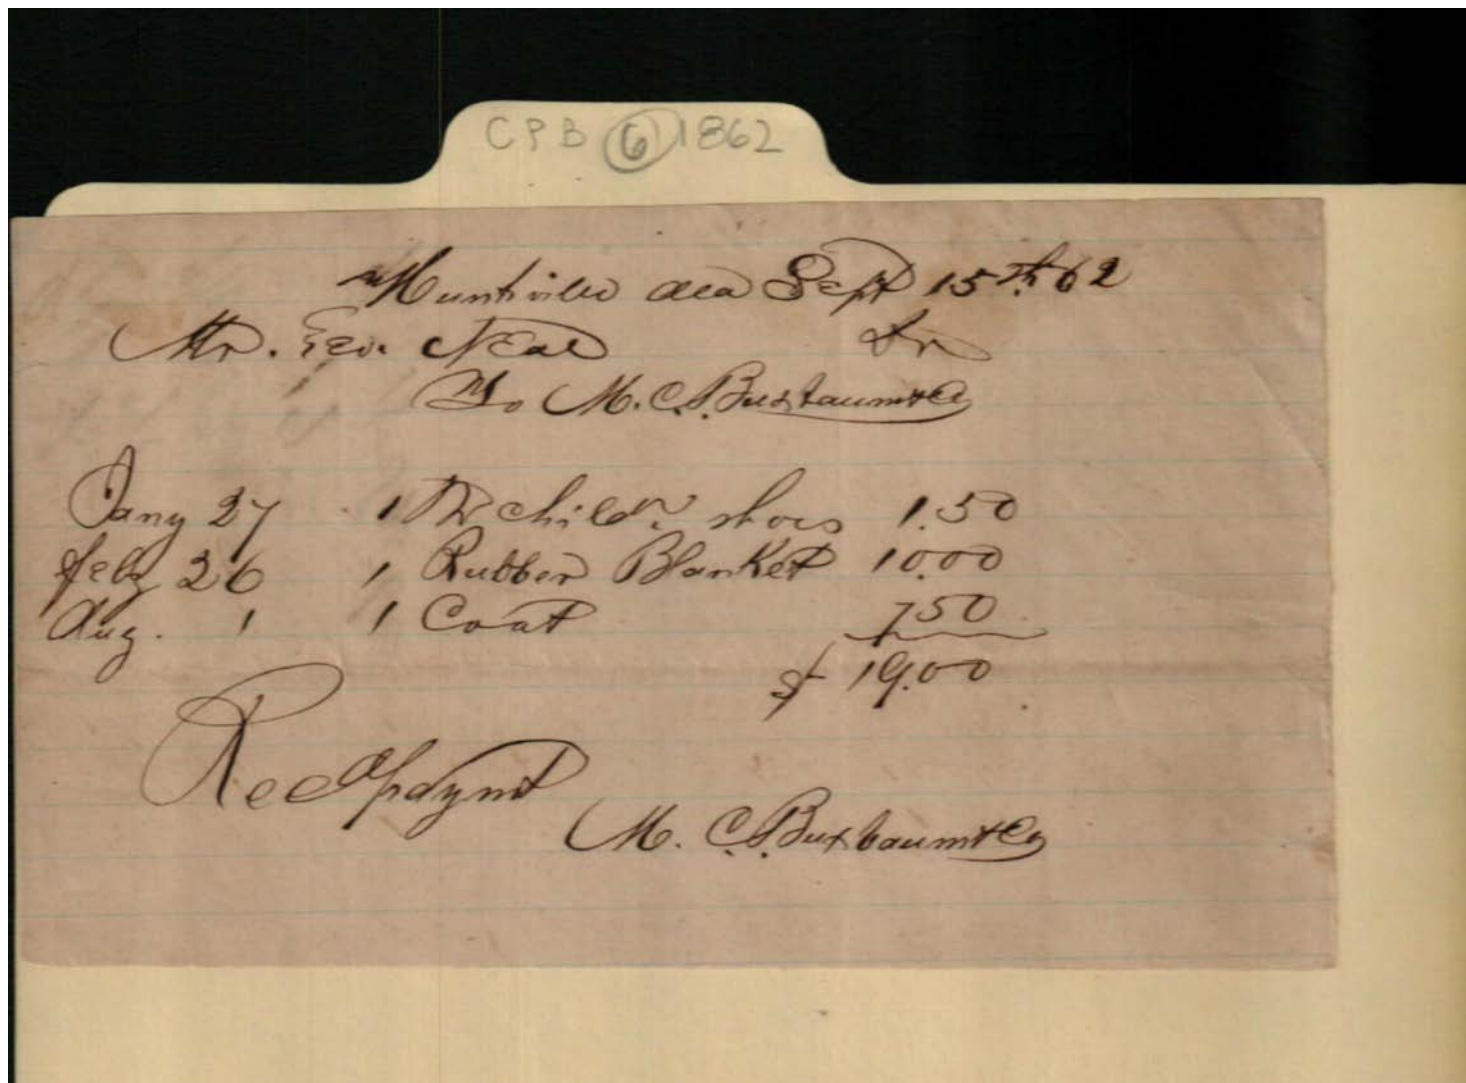 CPB 6 1862
Huntsville Ala Sept 15th 62
Mr. Geo. Neal Dr
To M. C. Buxbaum & Co
Jany 27 1 Pr child's shoes 1.50
Feby 26 1 Rubber Blanket 10.00
Aug. 1 1 Coat 7.50
$ 19.00
Recd paymt
M. C. Buxbaum & Co